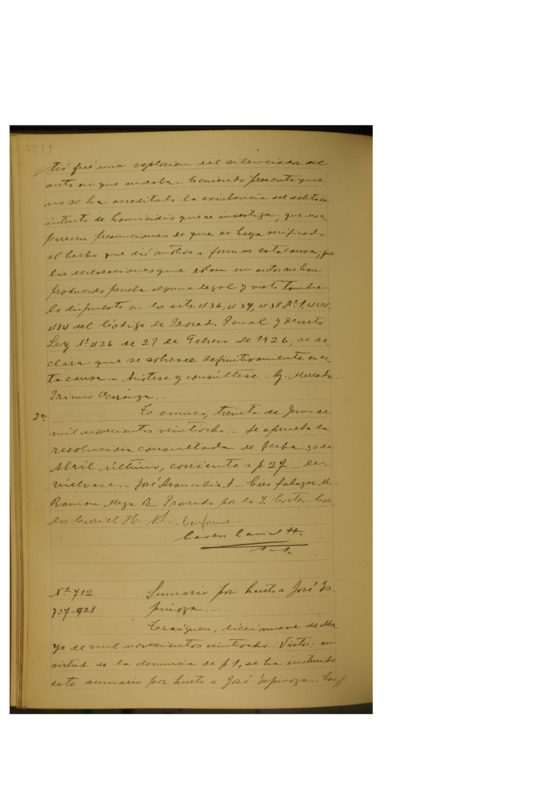 tró fué una explosion del silenciador del
auto en que andaba. Teniendo presente que
no se ha acreditado la existencia del delito de
intento de homicidio que se investiga, que no a
parecen presunciones de que se haya verificado
el hecho que dió motivo a formar esta causa, que
las declaraciones que obran en autos no han
producido prueba alguna legal y visto tambien
lo dispuesto en los arts. 436, 437, 438 Nº 1,
484 del Código de Proced. Penal y decreto
Ley Nº 426 de 28 de Febrero de 1926, se de
clara que se sobresee definitivamente en es
ta causa. Anótese y consúltese. G. Mercado
Primo
2ª Temuco, treinta de Junio de
mil novecientos veintiocho. Se aprueba la
resolución consultada de fecha 30 de
Abril último, corriente a f. 27. De-
vuélvase. José A. Caro Salazar M.
Ramon Meza B. Proveído por la I. Corte. Car-
los H. S. Conforme
Carlos H.
Nº 712 Sumario por hurto a José Es-
737-928 pinoza.
Traiguen, diecinueve de Ma
yo de mil novecientos veintiocho. Vistos: en
virtud de la denuncia de f. 1, se ha instruido
este sumario por hurto a José Espinoza.